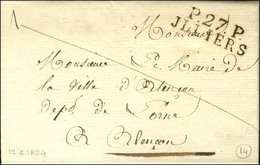 P. 27. P.
JULIERS
Monsieur
Monsieur Le Maire de
la Ville d'Alencon
dept. de l'orne
a Alençon
14